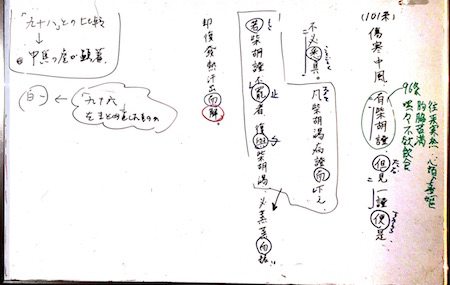 (101条)
傷寒中風、有柴胡證、但見一證便是、
96条
往来寒熱
胸脇苦満
心煩喜嘔
嘿々不欲飲食
不必悉具。
凡柴胡湯病證而下之、
若柴胡證不罷者、復與柴胡湯、必蒸蒸而振、
却復發熱汗出而解。
「九十八」との比較
↓
「九十六